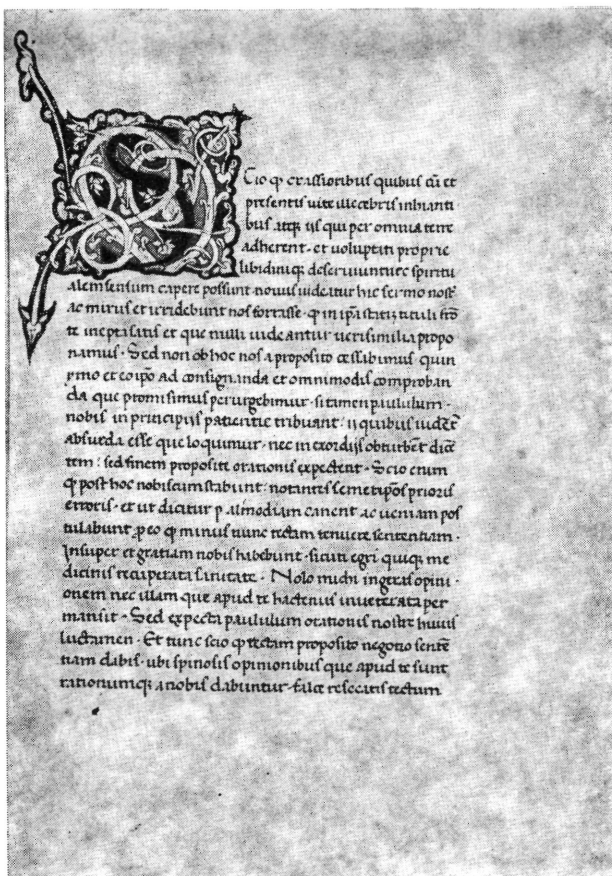 Scio ꝙ crassioribus quibus cū et
presentis uite illecebris inhianti
bus atqꝫ iis qui per omnia terre
adherent· et uoluptati proprie
libidiniqꝫ deseruiunt nec spiritu
alem sensum capere possunt nouus uideatur hic sermo nost̄
ac mirus et irridebunt nos fortasse· ꝙ in ip̄a statiꝫ tituli frō
te inepta satis et que nulli uideantur uerisimilia propo
namus· Sed non ob hoc nos a proposito cessabimus quin
ymo et eo ip̄o ad consignanda et omnimodis comproban
da que promisimus perurgebimur· si tamen paululum·
nobis in principiis patientie tribuant· ii quibus uidēt̄
absurda esse que loquimur· nec in exordiis obturbēt dicē
tem: sed finem proposite orationis expectent· Scio enim
ꝙ post hoc nobiscum stabunt: notantes semetip̄os prioris
erroris· et ut dicitur palinodiam canent ac ueniam pos
tulabunt ꝓ eo ꝙ minus nunc rectam tenuere sententiam·
Insuper et gratiam nobis habebunt· sicuti egri quiqꝫ me
dicinis recuperata sanitate· Nolo michi ingeras opini
onem nec illam que apud te hactenus inueterata per
mansit· Sed expecta paululum orationis nostre huius
luctamen· Et tunc scio ꝙ rectam proposito negotio sentē
tiam dabis· ubi spinosis opinionibus que apud te sunt
rationumqꝫ a nobis dabuntur· falce resecatis rectum